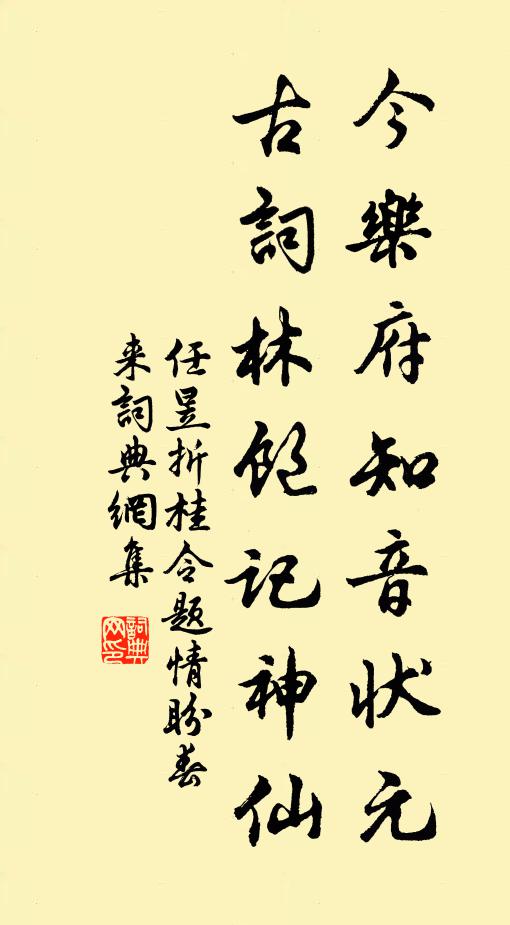 今樂府知音狀元
古詞林飽記神仙
任昱折桂令題情盼春
来詞典網集
詞典網印